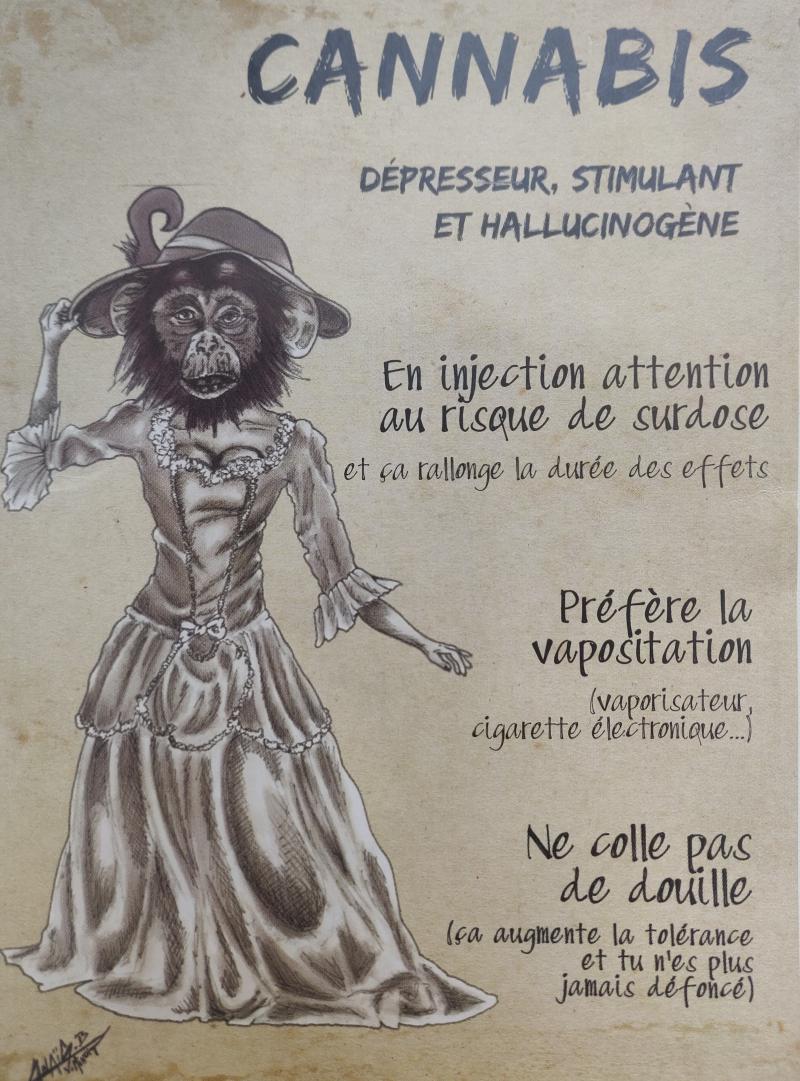 CANNABIS
DÉPRESSEUR, STIMULANT
ET HALLUCINOGÈNE
En injection attention
au risque de surdose
et ça rallonge la durée des effets
Préfère la
vapositation
(vaporisateur,
cigarette électronique...)
Ne colle pas
de douille
(ça augmente la tolérance
et tu n'es plus
jamais défoncé)
ANAÏS.B